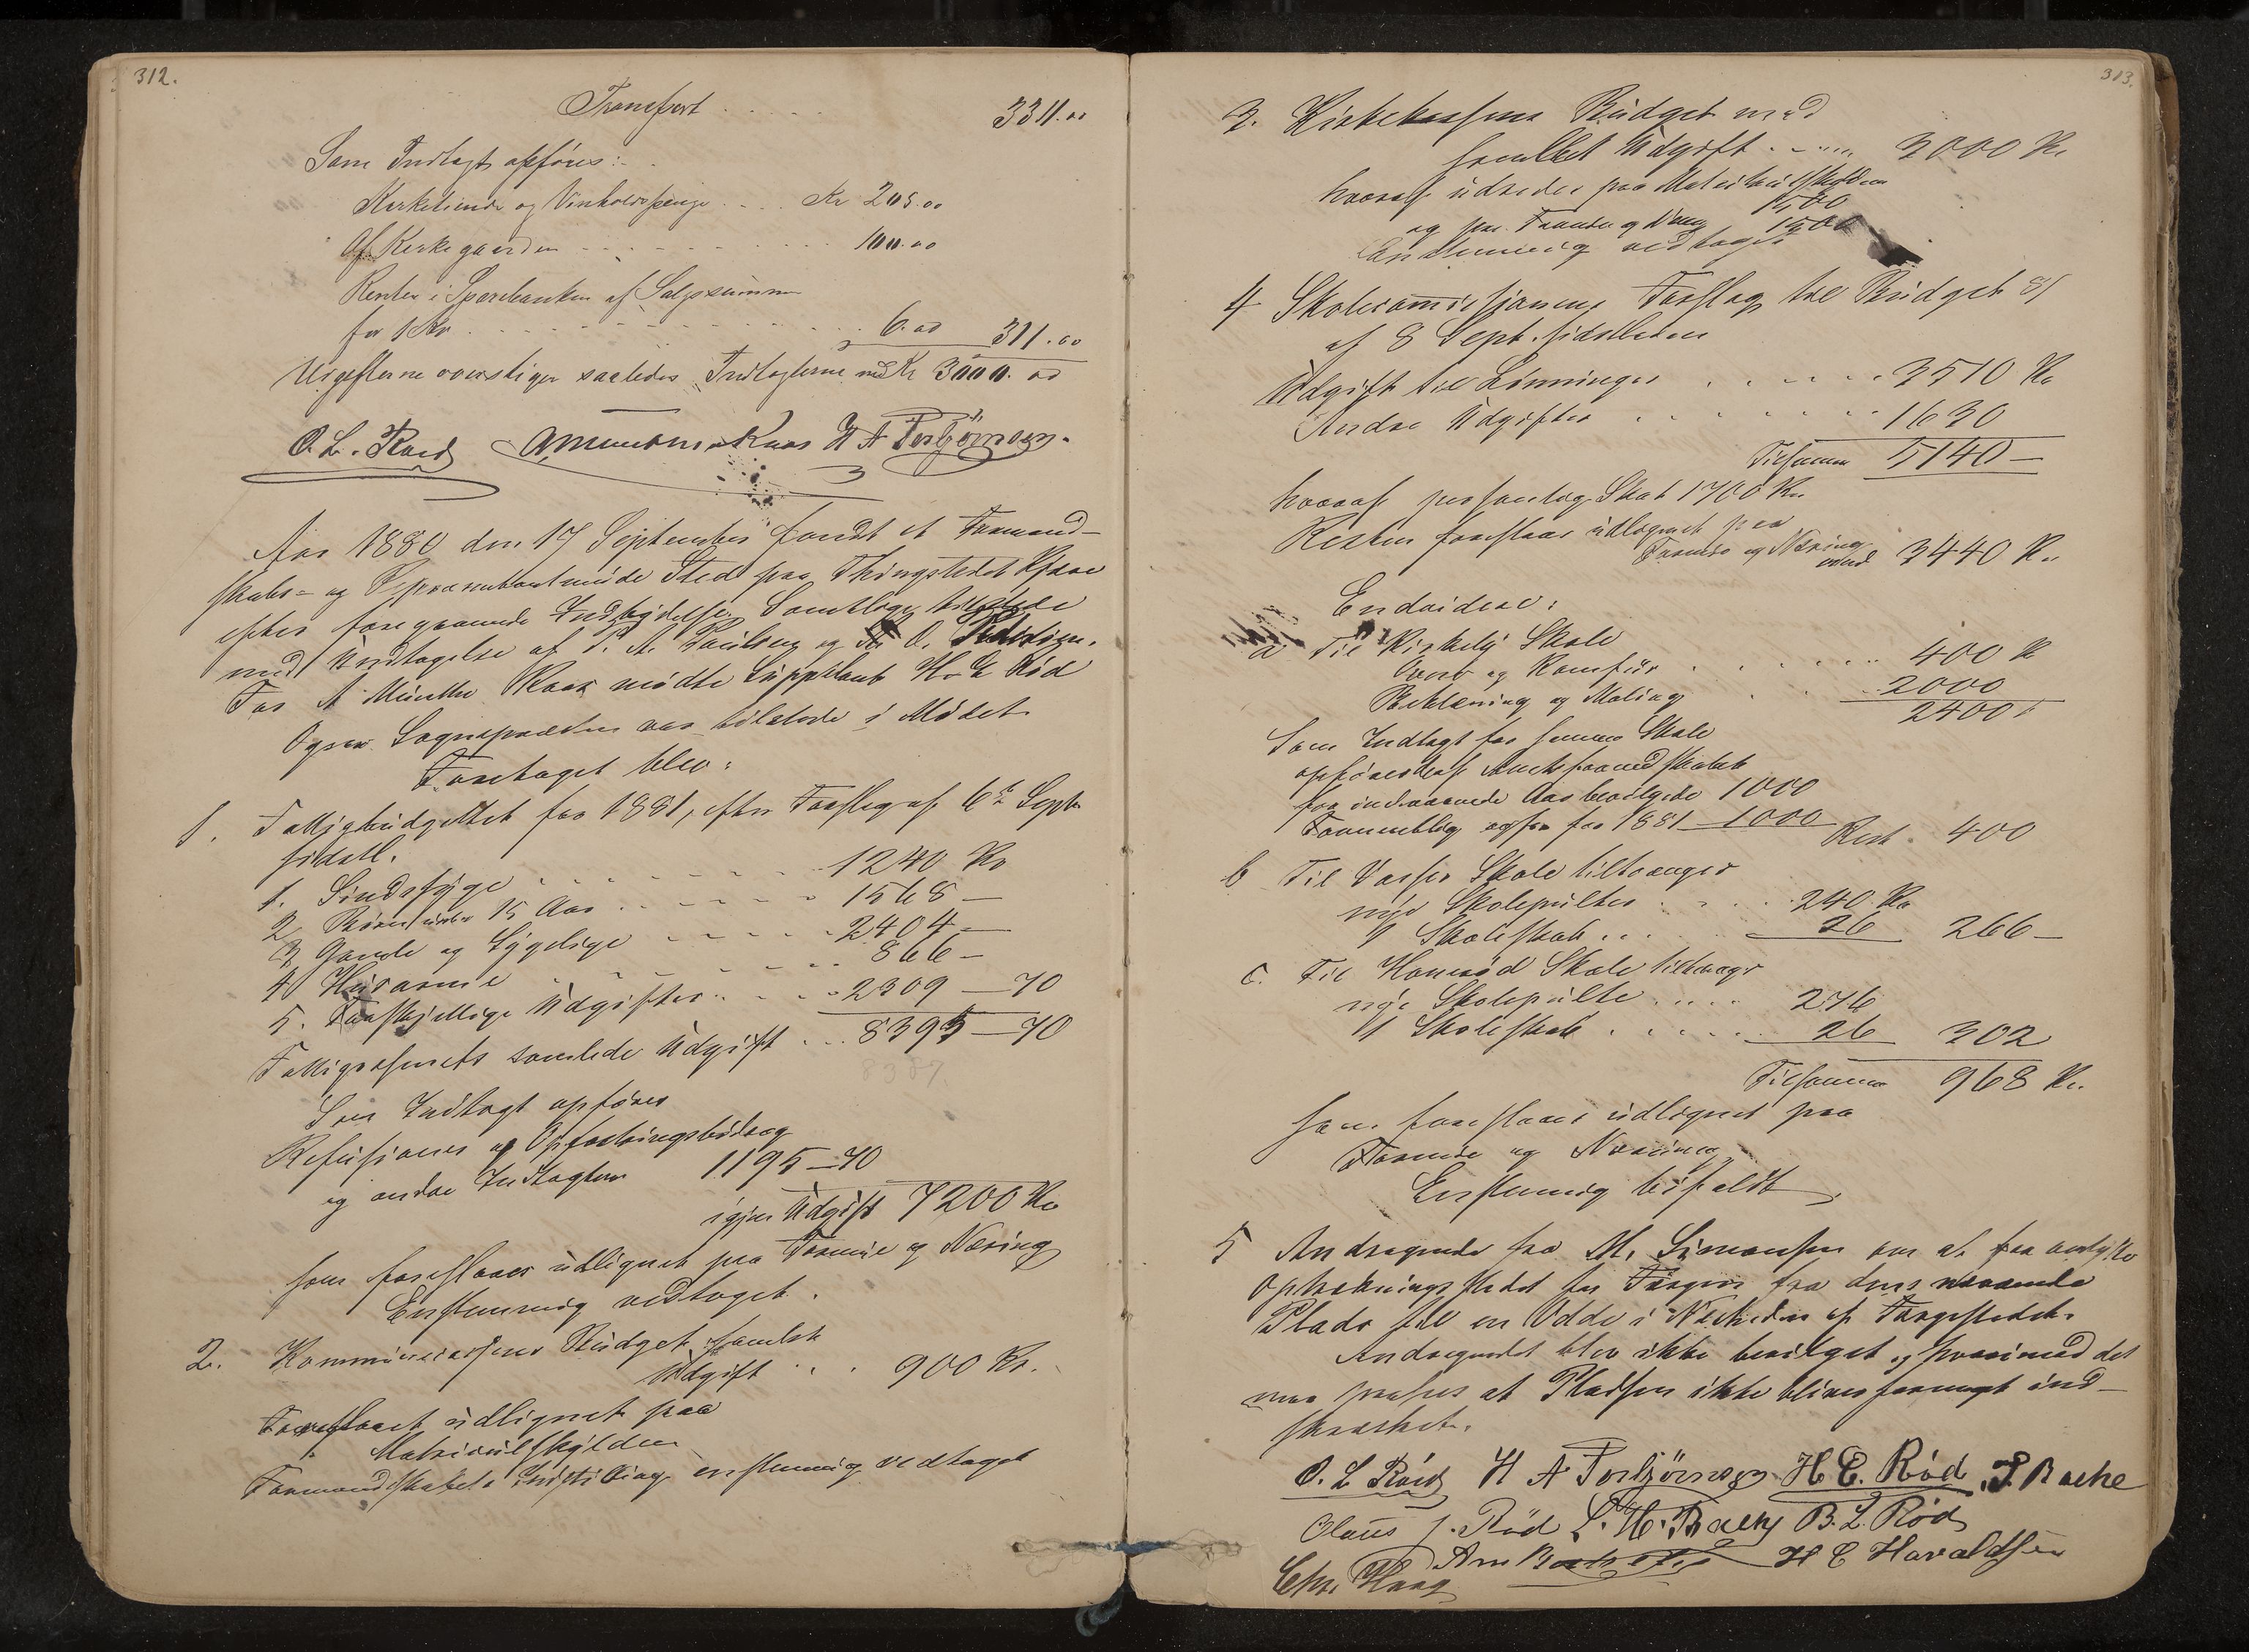 312.
Transport . . . . . 3311.00
Som Indtægt opføres:
Kirketiende og Vinholdspenge . . . . Kr 205.00
Af Kirkegaarden . . . . . . . . . . 100.00
Renter i Sparebanken af Salgssummen
for 1 Ko . . . . . . . . . . . 6.00 311.00
Udgifterne overstiger saaledes Indtægterne med Kr 3000.00
O. L. Røed H A Torbjörnsen.
Aar 1880 den 17 September holdt et Formand-
skabs- og Repræsentantmøde Sted paa Thingstedet
efter foregaaende Indbydelse. Samtlige tilstede
med Undtagelse af P. A. Paulsen og O.
For A Munthe Kaas mødte Suppleant H. E Rød
Ogsaa Sognepræsten var tilstede i Mødet.
Foretaget blev:
1. Fattigbudgettet for 1881, efter Forslag af 6te Sept
sidstl.
1. Sindssyge . . . . . . . 1240 Kr
2 Børn under 15 Aar . . . . . . 1568 —
3 Gamle og Sygelige . . . . . 2404 —
4 Husarme . . . . . . . 866 —
5. Forskjellige Udgifter . . . . 2309 — 70
Fattigvæsenets samlede Udgift . . . 8395 — 70
8387.
Som Indtægt opføres
Refusioner og Opfostringsbidrag
og andre Indtægter 1195 — 70
igjen Udgift 7200 Kr
som foreslaaes udlignet paa Formue og Næring
Enstemmig vedtaget.
2. Kommunecassens Budget samlet
Udgift . . . 900 Kr.
Foreslaaet udlignet paa
Matriculskylden
Formandskabets Indstilling enstemmig vedtaget
313.
3. Kirkekassens Budget med
samlet Udgift . . . . . 3000 Kr
hvoraf udredes paa Matrikulskylden
1500
og paa Formue og Næring 1500
Enstemmig vedtaget
4 Skolecommissionens Forslag til Budget 81
af 8 Sept. sidstleden
Udgift til Lønninger . . . . . . 3510 Kr
Andre Udgifter . . . . . . . 1630
Tilsammen 5140 —
hvoraf personlig Skat 1700 Kr.
Resten foreslaaes udlignet paa
Formue og Næring
med 3440 Kr.
Endvidere:
a Til Kirkeby Skole
Ovne og Komfür . . . . . . 400 K
Beklædning og Maling . . . 2000
2400
Som Indtægt for samme Skole
opføres deraf Amtsformandskabet
for indeværende Aar bevilgede 1000
Formentlig ogsaa for 1881 1000 Rest . 400
b Til Vasser Skole tiltrænges
nye Skolepulter . . . . 240 Kr
1 Skoleskab . . . 26 266 —
c. Til Honerød Skole tiltrænges
nye Skolepulte . . . . 276
1 Skoleskab . . . . . . 26 302
Tilsammen 968 Kr.
som foreslaaes udlignet paa
Formue og Næring
Enstemmig bifaldt
5 Andragende fra M. Simonsen om at faa
Optrækningsstedet for Færgen fra dens nuværende
Plads til en Odde i Nærheden af Færgestedet.
Andragendet blev ikke bevilget, hvorimod det
maa passes at Pladsen ikke bliver formeget ind-
skrænket.
O. L. Røed H A Torbjörnsen H E. Rød S. Bache
Olaus J. Rød L. H. Bache B. L. Rød
H E Haraldsen
Chr. Haag